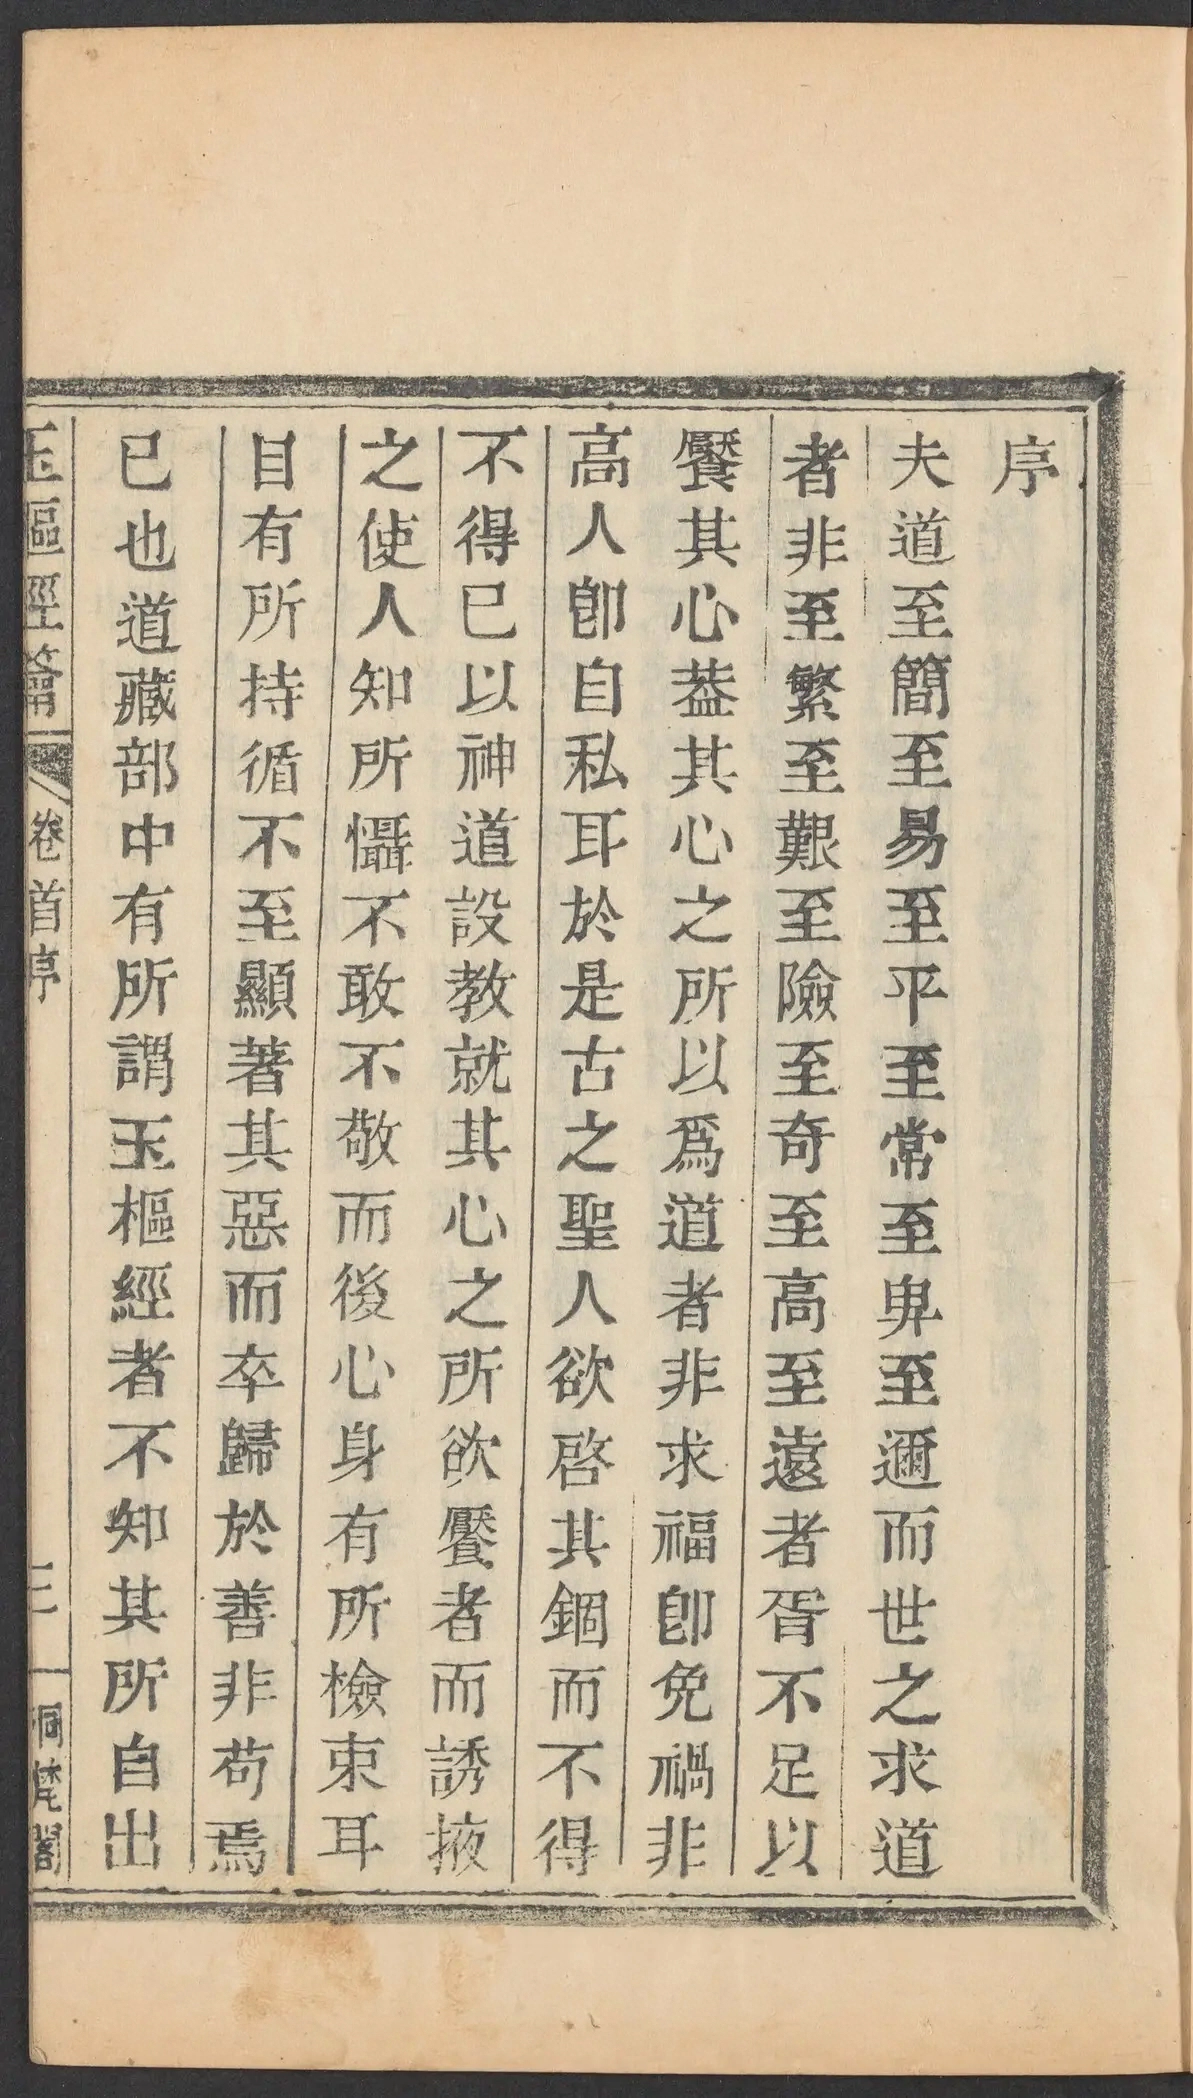 序
夫道至簡至易至平至常至卑至邇而世之求道
者非至繁至艱至險至奇至高至遠者胥不足以
饜其心葢其心之所以爲道者非求福卽免禍非
高人卽自私耳於是古之聖人欲啓其錮而不得
不得已以神道設教就其心之所欲饜者而誘掖
之使人知所懾不敢不敬而後心身有所檢束耳
目有所持循不至顯著其惡而卒歸於善非苟焉
已也道藏部中有所謂玉樞經者不知其所自出
玉樞經籥
卷首序
三
洞梵閣